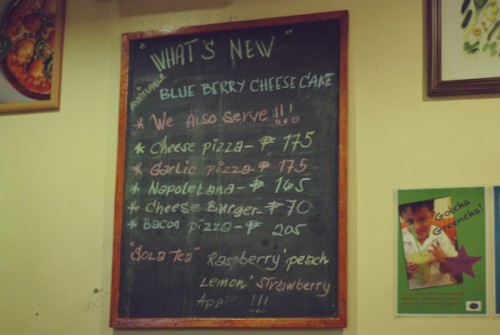 "WHAT'S NEW"
AVAILABLE
BLUE BERRY CHEESE CAKE
* We Also Serve!!!
* Cheese pizza - ₱ 175
* Garlic pizza - ₱ 175
* Napoletana - ₱ 165
* Cheese Burger - ₱ 70
* Bacon pizza - ₱ 205
"Sola Tea" Raspberry' peach
Lemon' Strawberry
Apple !!!
Gotcha
Greencha!